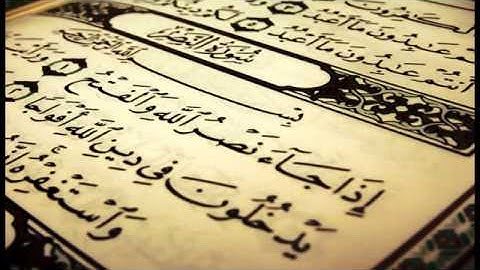 ٱلْكَٰفِرُونَ
عَٰبِدُونَ مَآ أَعْبُدُ
أَنتُمْ عَٰبِدُونَ مَآ أَعْبُدُ
سُورَةُ النَّصْرِ
بِسْمِ ٱللَّهِ ٱلرَّحْمَٰنِ ٱلرَّحِيمِ
إِذَا جَآءَ نَصْرُ ٱللَّهِ وَٱلْفَتْحُ ١ وَرَأَيْتَ
يَدْخُلُونَ فِى دِينِ ٱللَّهِ أَفْوَاجًا ٢
وَٱسْتَغْفِرْهُ إِنَّهُۥ